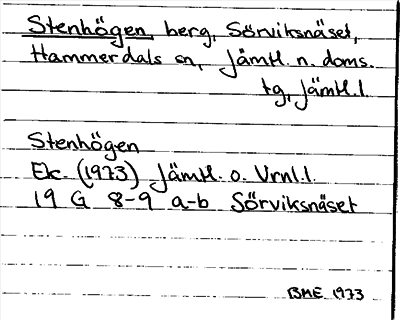 Stenhögen, berg, Sörviksnäset,
Hammerdals sn, Jämtl. n. doms.
tg, Jämtl. l.
Stenhögen
Ek. (1973) Jämtl. o. Vrnl. l.
19 G 8-9 a-b Sörviksnäset
BME 1973